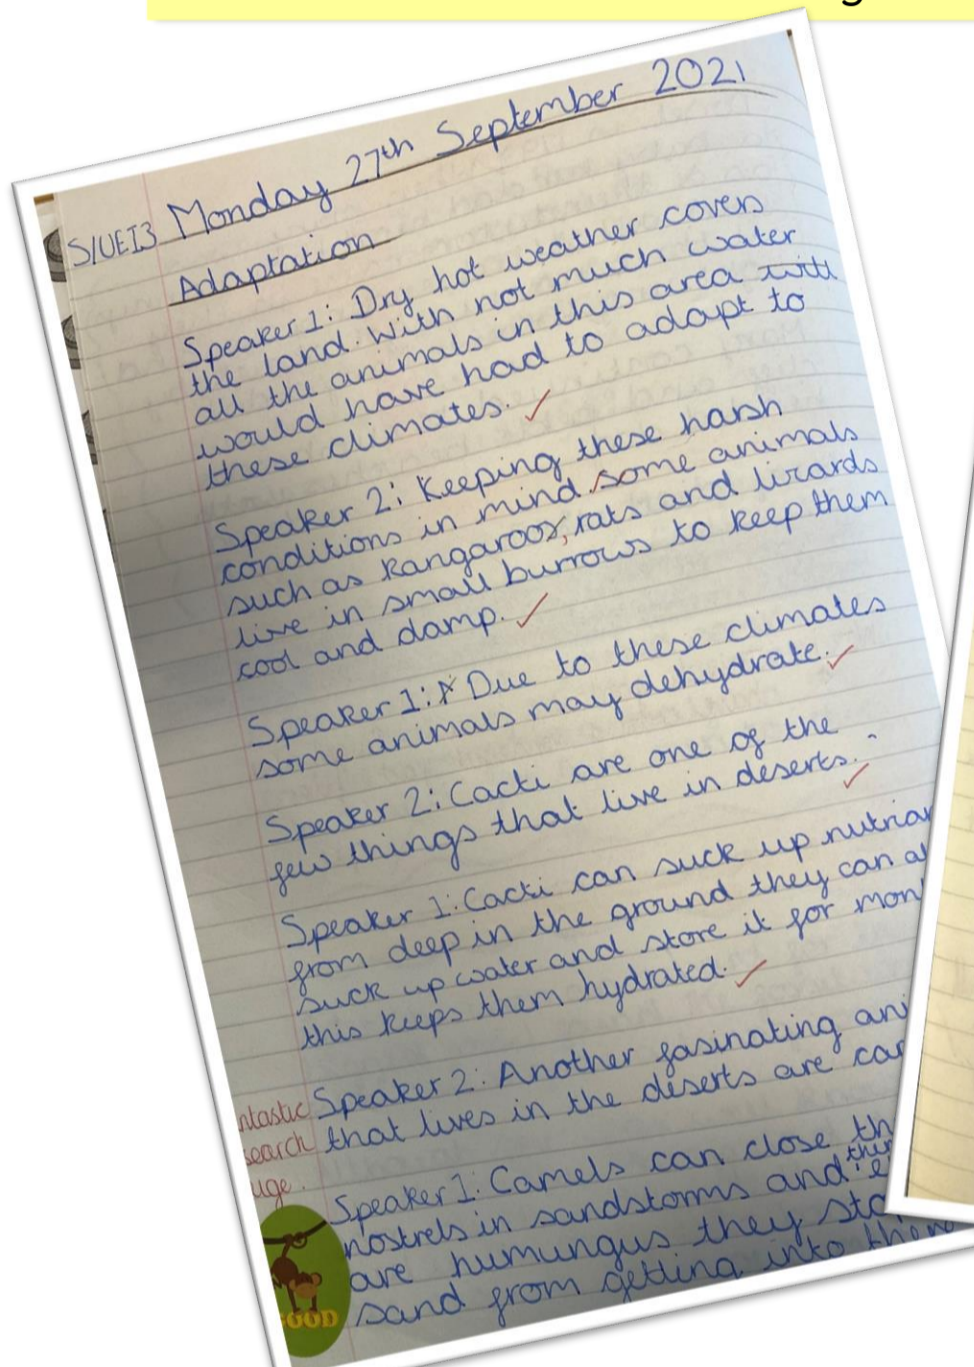 Monday 27th September 2021
S/UEI3
Adaptation
Speaker 1: Dry hot weather covers
the land. With not much water
all the animals in this area will
would have had to adapt to
these climates.
Speaker 2: Keeping these harsh
conditions in mind some animals
such as kangaroos, rats and lizards
live in small burrows to keep them
cool and damp.
Speaker 1: Due to these climates
some animals may dehydrate.
Speaker 2: Cacti are one of the
few things that live in deserts.
Speaker 1: Cacti can suck up nutrian
from deep in the ground they can al
suck up water and store it for mon
this keeps them hydrated.
Speaker 2: Another fasinating ani
that lives in the deserts are ca
ntastic
search
uge.
Speaker 1: Camels can close th
nostrels in sandstorms and their e
are humungus they sto
sand from getting into them
GOOD